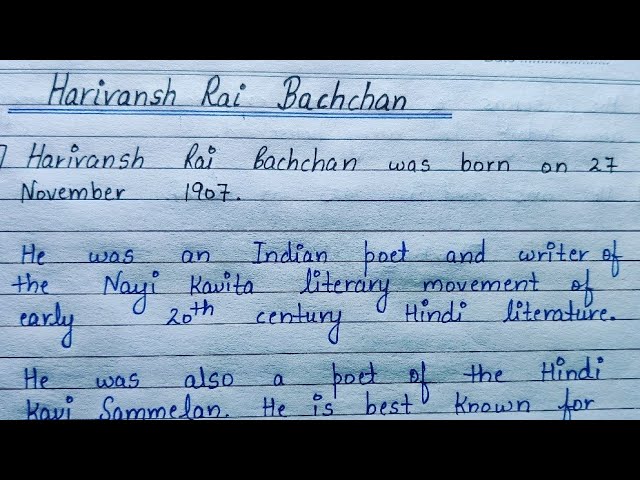 Harivansh Rai Bachchan
Harivansh Rai Bachchan was born on 27
November 1907.
He was an Indian poet and writer of
the Nayi Kavita literary movement of
early 20th century Hindi literature.
He was also a poet of the Hindi
Kavi Sammelan. He is best known for